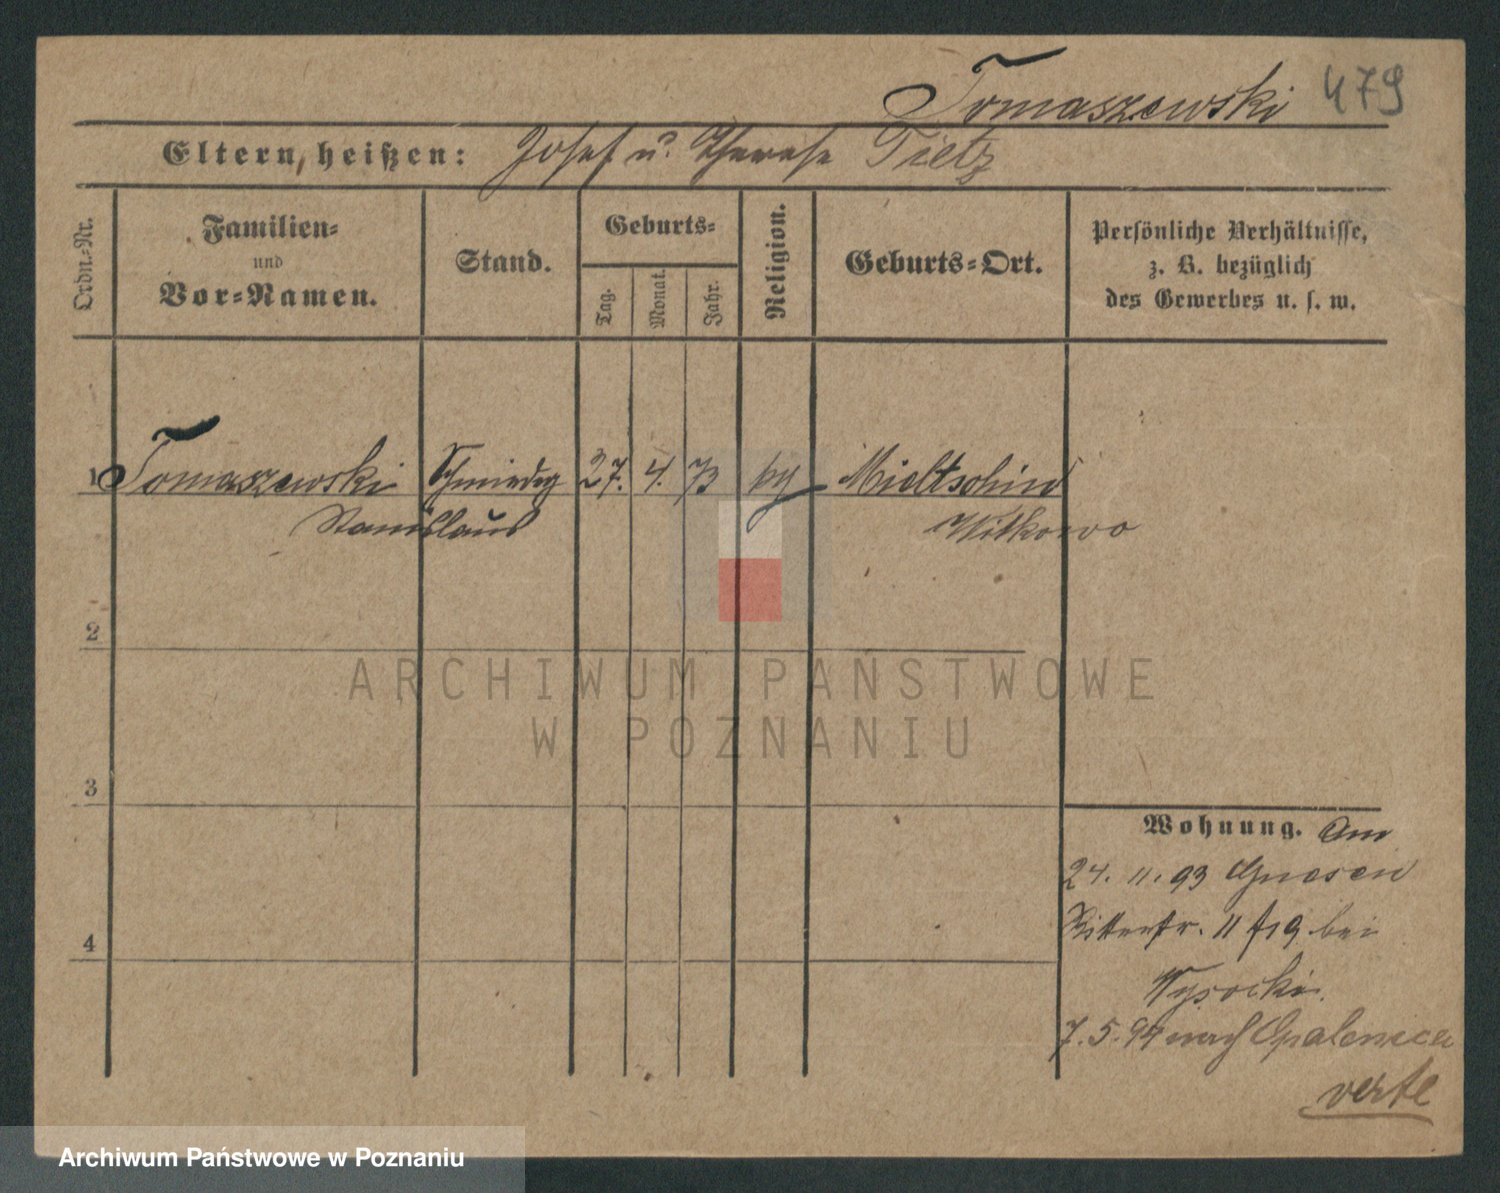 Tomaszewski 479
Eltern heißen: Josef u. Therese Tietz
Ordn.-Nr.
Familien-
und
Vor-Namen.
Stand.
Geburts-
Tag.
Monat.
Jahr.
Religion.
Geburts-Ort.
Persönliche Verhältnisse,
z. B. bezüglich
des Gewerbes u. s. w.
1 Tomaszewski Schmiedeg 27. 4. 73 Mieltschin
Stanislaus Witkowo
2
ARCHIWUM PAŃSTWOWE
W POZNANIU
3
Wohnung. Am
24. 11. 93 Gnesen
Ritterstr. 11 bei
4
Wysocki.
7. 5. 94 nach Opalenica
verte
Archiwum Państwowe w Poznaniu